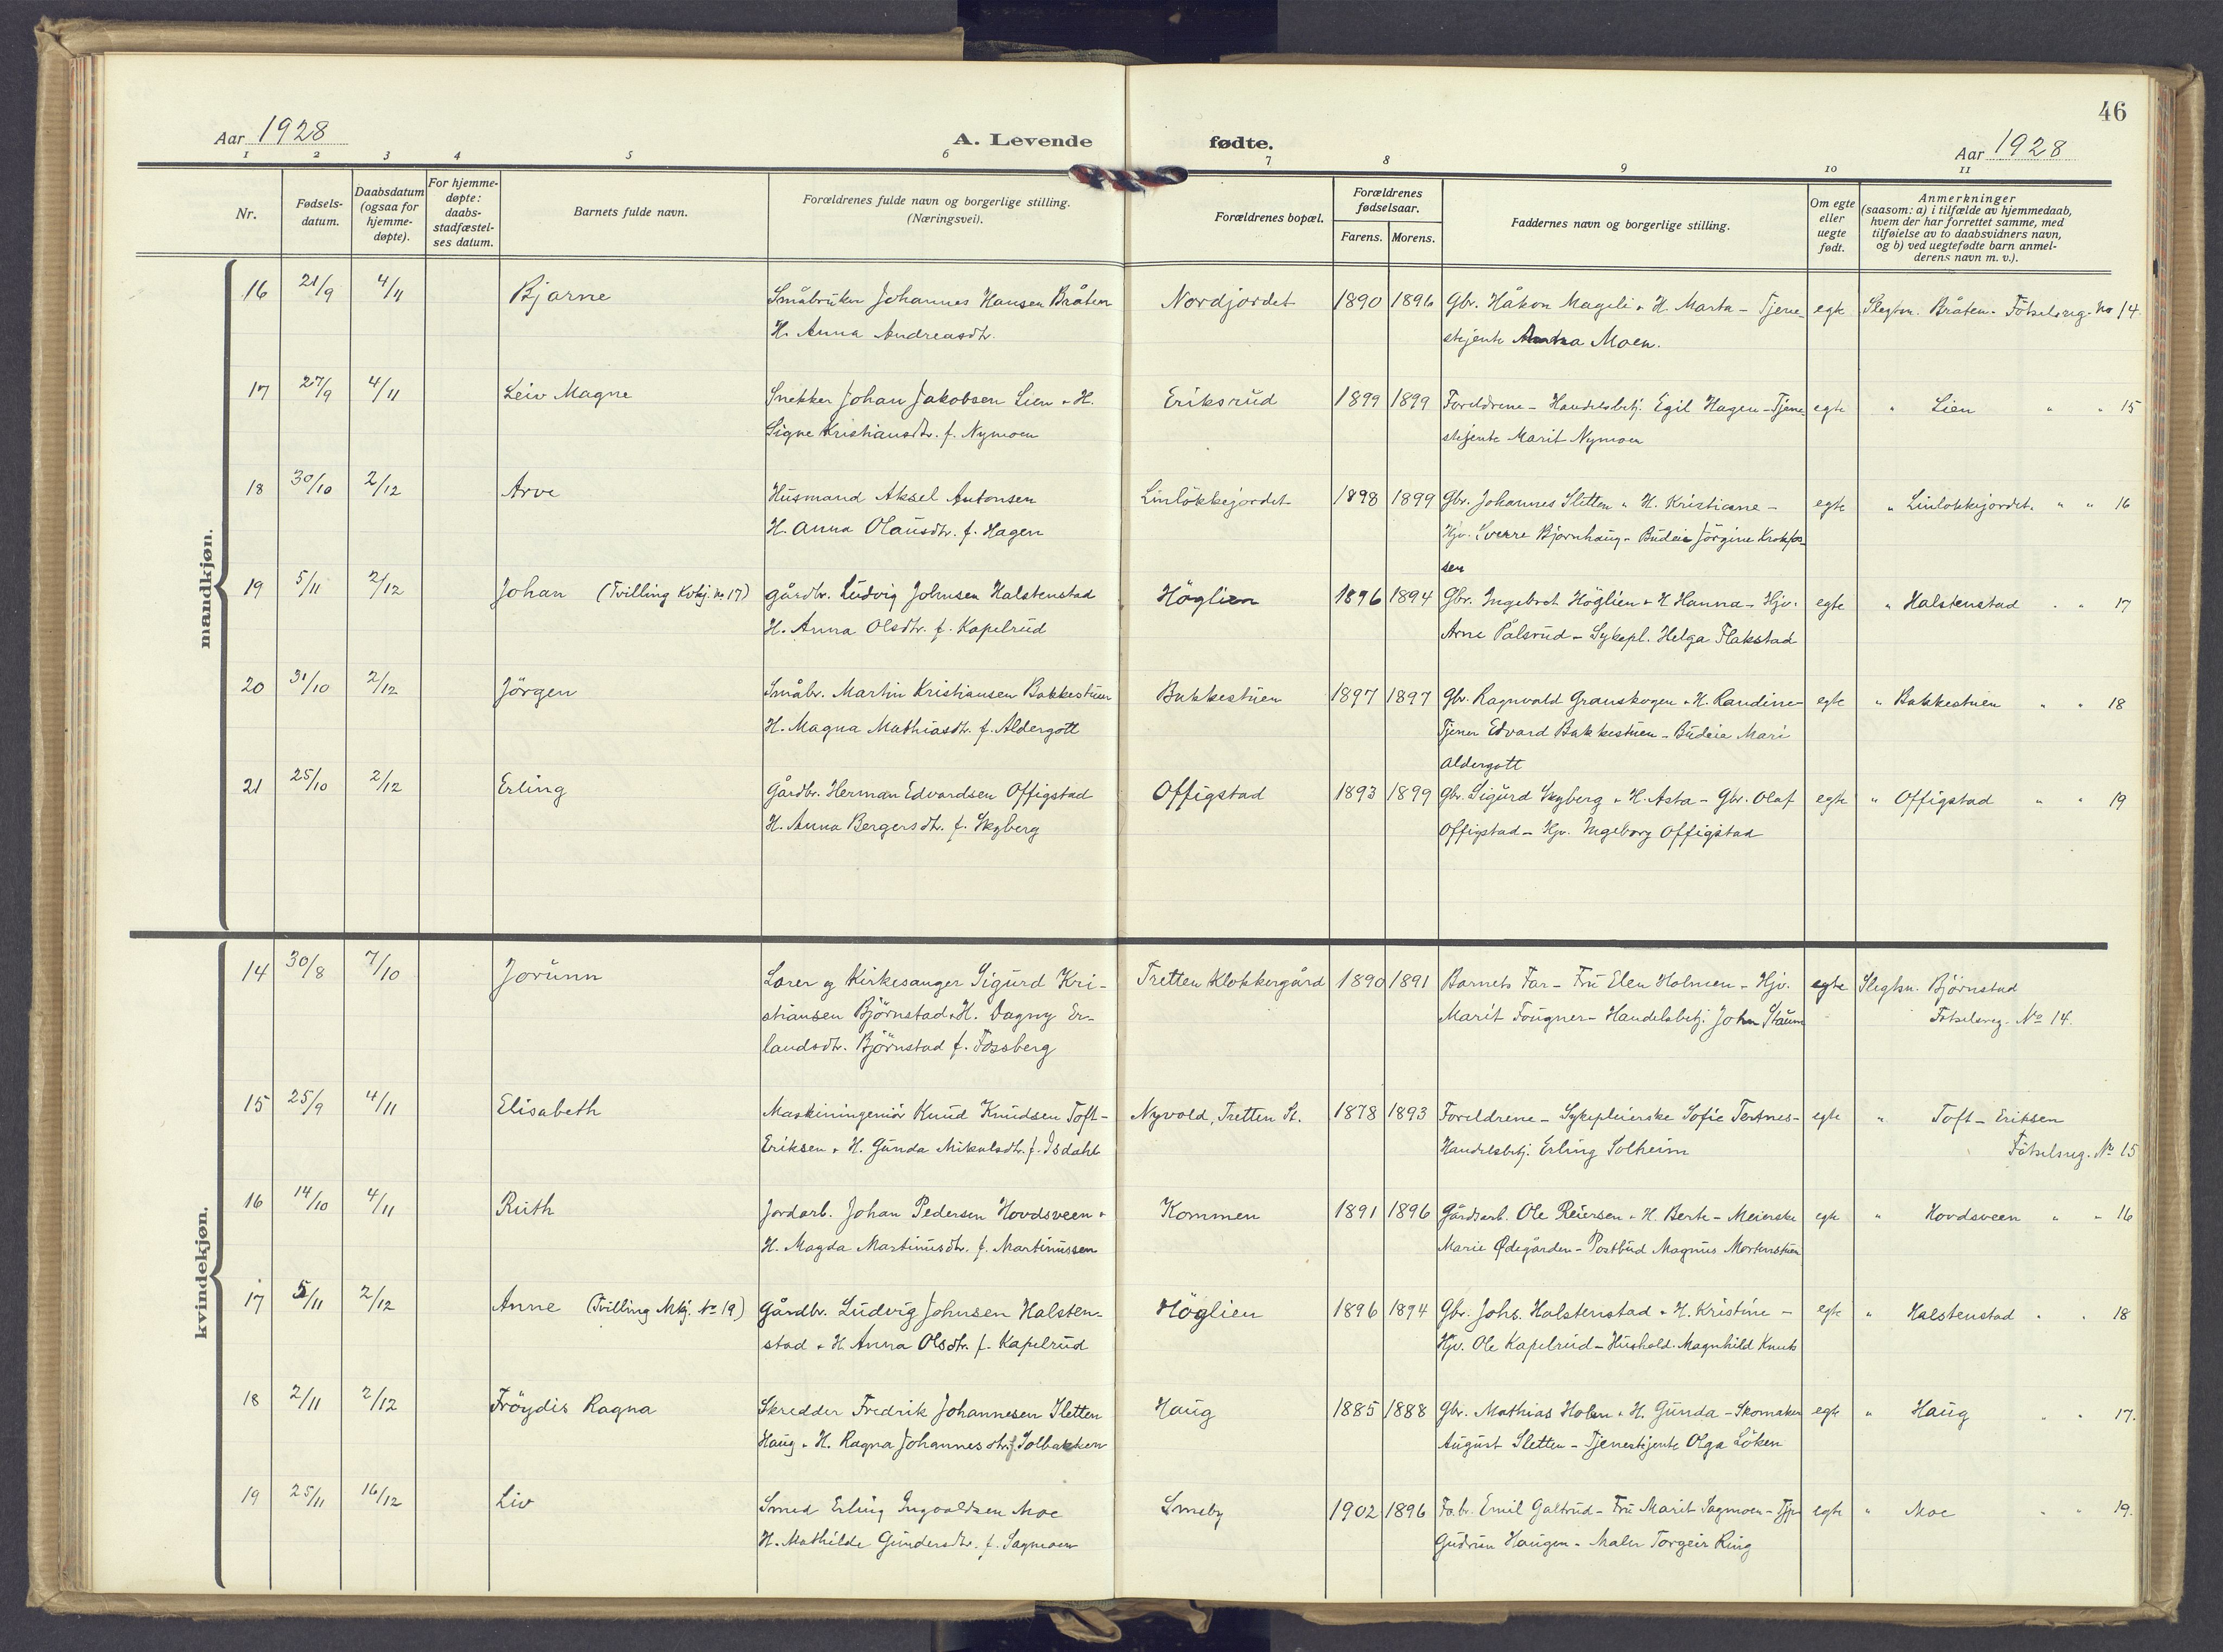 46
Aar 1928
A. Levende
fødte.
Aar 1928
1 2 3 4 5 6 7 8 9 10 11
Nr.
Fødsels-
datum.
Daabsdatum
(ogsaa for
hjemme-
døpte).
For hjemme-
døpte:
daabs-
stadfæstel-
ses datum.
Barnets fulde navn.
Forældrenes fulde navn og borgerlige stilling.
(Næringsvei).
Forældrenes bopæl.
Forældrenes
fødselsaar.
Farens. Morens.
Faddernes navn og borgerlige stilling.
Om egte
eller
uegte
født.
Anmerkninger
(saasom: a) i tilfælde av hjemmedaab,
hvem der har forrettet samme, med
tilføielse av to daabsvidners navn,
og b) ved uegtefødte barn anmel-
derens navn m. v.).
mandkjøn.
16 21/9 4/11 Bjarne Småbruker Johannes Hansen Bråten Nordjordet 1890 1896 Gbr. Håkon Mageli + H. Marta - Tjene- egte Slegtsn. Bråten. Fötselsreg. No 14.
H. Anna Andreasdtr. stejente Moen.
17 27/9 4/11 Leiv Magne Snekker Johan Jakobsen Lien + H. Eriksrud 1899 1899 Foreldrene - Handelsbetj. Egil Hagen - Tjene egte " Lien " " 15
Signe Kristiansdtr. f. Nymoen stejente Marit Nymoen
18 30/10 2/12 Arve Husmand Aksel Antonsen Linlökkejordet 1898 1899 Gbr. Johannes Sletten + H. Kristianne - egte " Linlökkejordet. " " 16
H. Anna Olausdtr. f. Hagen Hjv. Sverre Bjørnhaug - Budeie Jörgine Krokfos-
sen
19 5/11 2/12 Johan (Tvilling Kvkj. No 17) gårdbr. Ludvig Johnsen Halstenstad Höglien 1896 1894 Gbr. Ingebret Höglien + H Hanna - Hjv. egte " Halstenstad " " 17
H. Anna Olsdtr. f. Kapelrud Arne Pålsrud - Sykepl. Helga Flakstad
20 31/10 2/12 Jörgen Småbr. Martin Kristiansen Bakkestuen Bakkestuen 1897 1897 Gbr. Ragnvald Granskogen + H. Randine- egte " Bakkestuen " " 18
H. Magna Mathiasdtr. f. Aldergott Tjener Edvard Bakkestuen - Budeie Mari
Aldergott
21 25/10 2/12 Erling Gårdbr. Herman Edvardsen Offigstad Offigstad 1893 1899 Gbr. Sigurd Skyberg + H. Asta - Gbr. Olaf egte " Offigstad " " 19
H. Anna Bergersdtr. f. Skyberg Offigstad - Hjv. Ingeborg Offigstad
kvindekjøn.
14 30/8 7/10 Jorunn Lærer og Kirkesanger Sigurd Kri- Tretten Klokkergård 1890 1891 Barnets Far - Fru Elen Holmen - Hjv. egte Slegtsn. Björnstad
stiansen Björnstad + H. Dagny Er- Marit Fougner - Handelsbetj. John Staum Fötselsreg. No 14.
landsdtr. Björnstad f. Fossberg
15 25/9 4/11 Elisabeth Maskiningeniör Knud Knudsen Toft- Nyvold, Tretten St. 1878 1893 Foreldrene - Sykepleierske Sofie Tertnes- egte " Toft - Eriksen
Eriksen + H. Gunda Mikalsdtr. f. Isdahl Handelsbetj. Erling Solheim Fötselsreg. No 15
16 14/10 4/11 Ruth Jordarb. Johan Pedersen Hovdsveen + Kommen 1891 1896 Gårdsarb. Ole Reiersen + H. Berte - Meierske egte " Hovdsveen " " 16
H. Magda Martinusdtr. f. Martinussen Marie Ødegården - Postbud Magnus Mortenstuen
17 5/11 2/12 Anne (Tvilling Mkj. No 19) Gårdbr. Ludvig Johnsen Halsten- Höglien 1896 1894 Gbr. Johs. Halstenstad + H. Kristine - egte " Halstenstad " " 18
stad + H. Anna Olsdtr. f. Kapelrud Hjv. Ole Kapelrud - Hushold. Magnhild Knuts
18 2/11 2/12 Fröydis Ragna Skredder Fredrik Johannesen Sletten Haug 1885 1888 Gbr. Mathias Holen + H. Gunda - Skomaker egte " Haug " " 17.
Haug + H. Ragna Johannesdtr. f. Solbakken August Sletten - Tjenestejente Olga Löken
19 25/11 16/12 Liv Smed Erling Ingvaldsen Moe Smeby 1902 1896 Fabr. Emil Galtrud - Fru Marit Sagmoen - egte " Moe " " 19.
H. Mathilde Gundersdtr. f. Sagmoen Gudrun Haugen - Maler Torgeir Ring